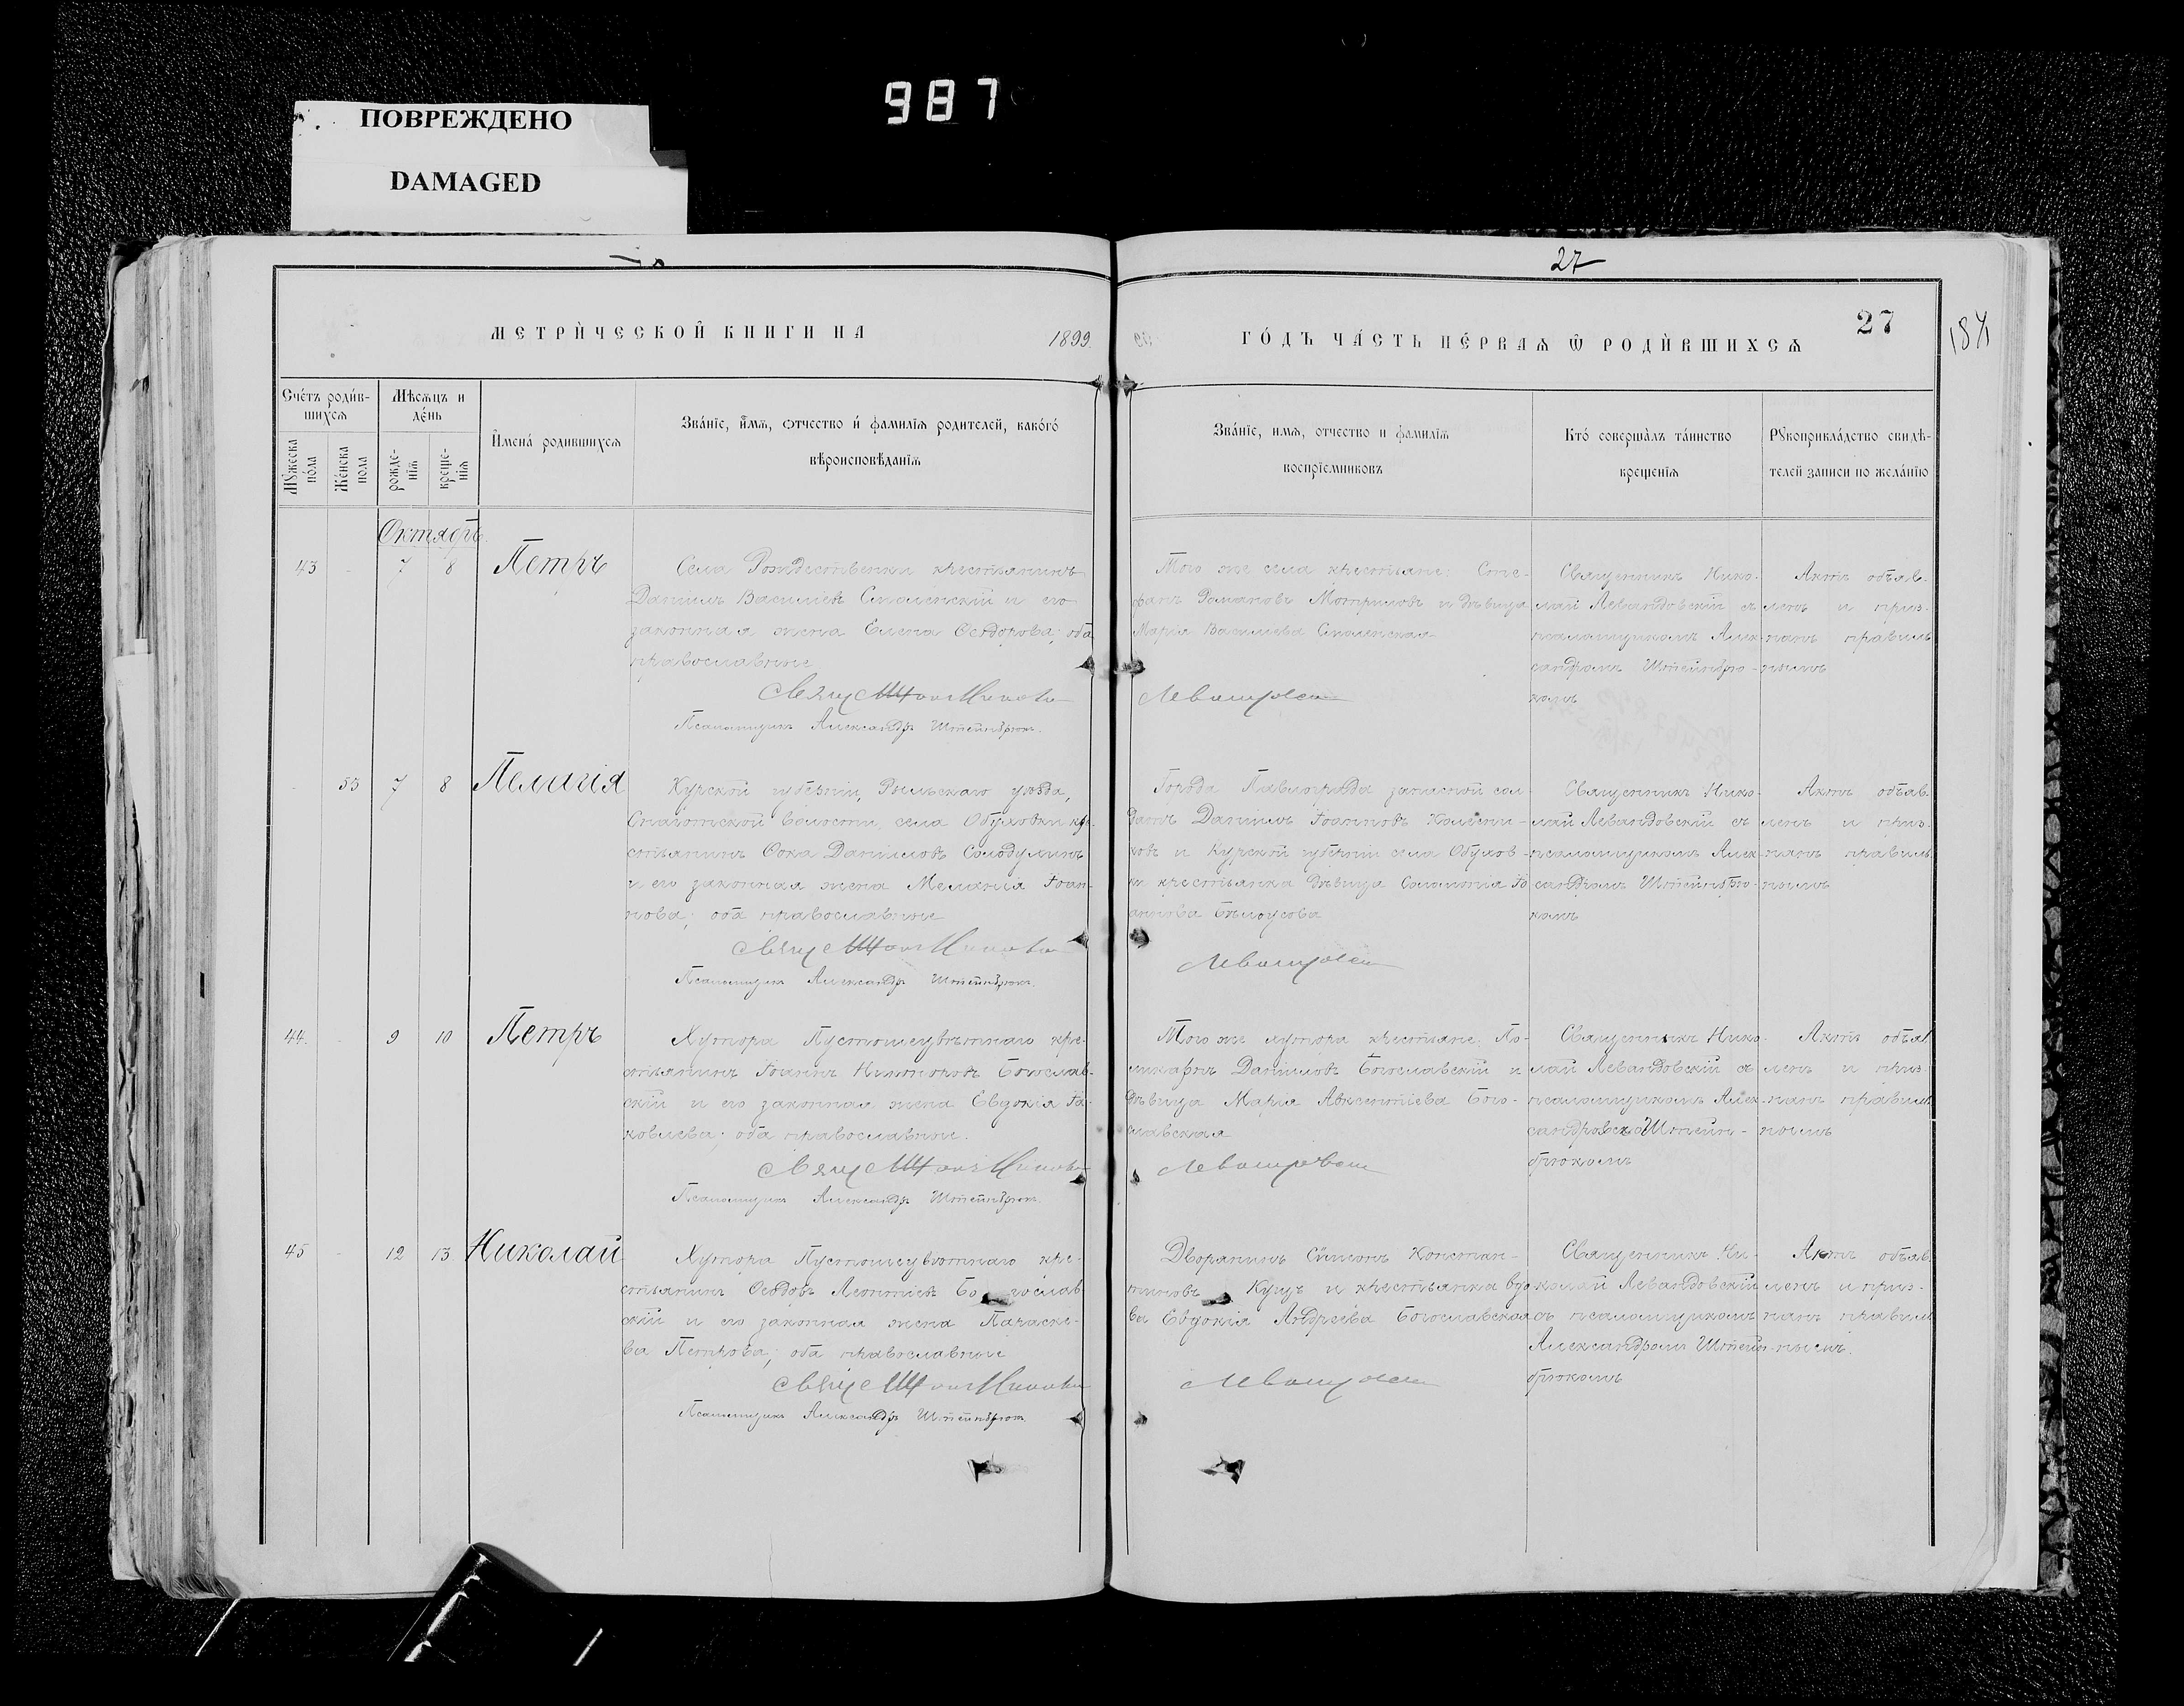 987
ПОВРЕЖДЕНО
DAMAGED
27
27
МЕТРИ́ЧЕСКОЙ КНИГИ НА 1899
ГО́ДЪ ЧА́СТЬ ПЕ́РВАѦ Ѿ РОДИ́ВШИХСѦ
Сче́тъ роди́в-
шихсѧ
Мѣсѧцъ и
де́нь
Мꙋжеска
по́ла
Же́нска
пола
рожде-
нїѧ
креще-
нїѧ
И҆мена́ родившихсѧ
Зва́нїе, и҆́мѧ, ѻтчество и҆ фамилїѧ родителей, како́го́
вѣроисповѣ́данїѧ
Зва́нїе, имѧ, отчество и фамилїѧ
воспрїемниковъ
Кто́ соверша̀лъ та́инство
крещенїѧ
Рꙋкоприкла́дство свидѣ́-
телей записи по жела́нїю
Октябрь
43 - 7 8 Петръ
Села Рождественки крестьянинъ
Данiилъ Василiевъ Смоленскiй и его
законная жена Елена Ѳеодорова; оба
православные
Священникъ Николай
Псаломщикъ Александръ Штейнбрюкъ.
Того же села крестьяне: Сте-
фанъ Романовъ и дѣвица
Марiя Василiева Смоленская
Левандовскiй
Священникъ Нико-
лай Левандовскiй съ
псаломщикомъ Алек-
сандромъ Штейнбрю-
комъ
Актъ объяв-
ленъ и приз-
нанъ правиль
нымъ
- 53 7 8 Пелагiя
Курской губернiи, Рыльскаго уѣзда,
волости, села Обуховки кре-
стьянинъ Ѳока Данiиловъ Солодухинъ
и его законная жена Меланiя Iоан-
нова; оба православные
Священникъ Николай
Псаломщикъ Александръ Штейнбрюкъ.
Города Павлограда запасной сол-
датъ Данiилъ Iоанновъ Колѣсни-
ковъ и Курской губернiи села Обухов-
ки крестьянка дѣвица Соломонiя Iо
аннова Бѣлоусова
Левандовскiй
Священникъ Нико-
лай Левандовскiй съ
псаломщикомъ Алек-
сандромъ Штейнбрю-
комъ
Актъ объяв-
ленъ и приз-
нанъ правиль
нымъ
44. - 9 10 Петръ
Хутора Пустоцвѣтнаго кре-
стьянинъ Iоаннъ Никаноровъ Богослав-
скiй и его законная жена Евдокiя Iа-
ковлева; оба православные.
Священникъ Николай
Псаломщикъ Александръ Штейнбрюкъ.
Того же хутора крестьяне: По-
ликарпъ Данiиловъ Богославскiй и
дѣвица Марiя Авксентiева Бого-
славская
Левандовскiй
Священникъ Нико-
лай Левандовскiй съ
псаломщикомъ Алек-
сандромъ Штейн-
брюкомъ
Актъ объяв
ленъ и приз-
нанъ правил
нымъ
45 - 12 13 Николай
Хутора кре-
стьянинъ Ѳеодоръ Леонтiевъ Богослав
скiй и его законная жена Параске-
ва Петрова; оба православные
Священникъ Николай
Псаломщикъ Александръ Штейнбрюкъ
Дворянинъ Сѵмеонъ Констан-
тиновъ Куцъ и крестьянка вдо
ва Евдокiя Андреева Богославская
Левандовскiй
Священникъ Ни-
колай Левандовскiй
съ псаломщикомъ
Александромъ Штейн-
брюкомъ
Актъ объяв
ленъ и приз-
нанъ правил
нымъ.